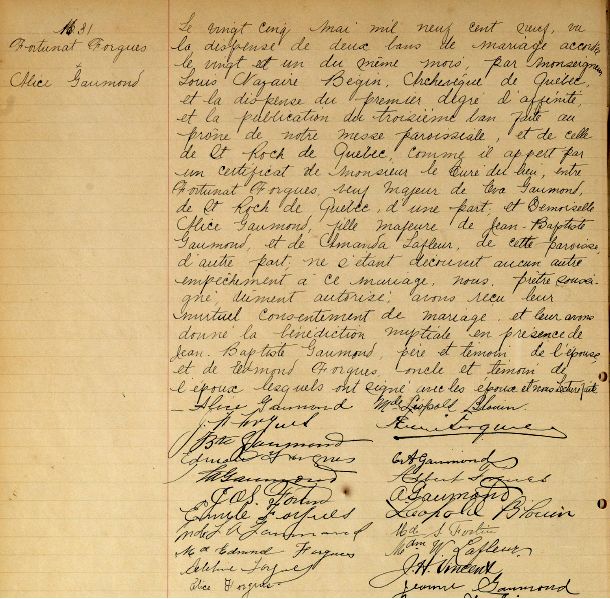 M 31
Fortunat Forgues
&
Alice Gaumond
Le vingt cinq mai mil neuf cent neuf, vu
la dispense de deux bans de mariage accordée
le vingt et un du même mois, par monseigneur
Louis Nazaire Begin, Archevêque de Quebec,
et la dispense du premier dégré d'affinité,
et la publication du troisième ban faite au
prône de notre messe paroissiale, et de celle
de St Roch de Quebec, comme il appert par
un certificat de Monsieur le Curé du lieu, entre
Fortunat Forgues, veuf majeur de Eva Gaumond,
de St Roch de Quebec, d'une part, et Demoiselle
Alice Gaumond, fille majeure de Jean-Baptiste
Gaumond, et de Amanda Lafleur, de cette paroisse
d'autre part; ne s'étant découvert aucun autre
empêchement à ce mariage, nous, prêtre soussi-
gné, dument autorisé, avons reçu leur
mutuel consentement de mariage et leur avons
donné la bénédiction nuptiale en présence de
Jean-Baptiste Gaumond, père et temoin de l'épouse
et de Edmond Forgues, oncle et témoin de
l'époux lesquels ont signé avec les époux et nous. Lecture faite.
Alice Gaumond Mde Léopold Blouin
Forgues
Bte Gaumond
Edmond Forgues C A Gaumond
Gaumond Albert Forgues
J. O. S. Fortin A Gaumond
Emile Forgues Léopold Blouin
Mde L A Gaumond Mde S. Fortin
Md Edmond Forgues Mdm W Lafleur
Forgues J. H. Vincent
Alice Forgues Jeanne Gaumond